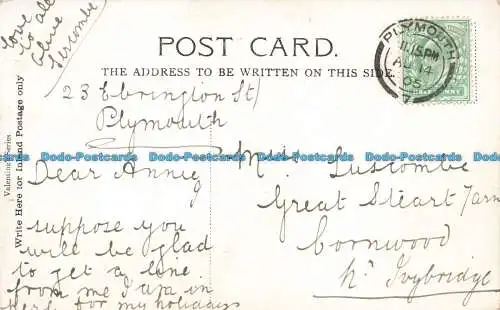 love all
to
Olive
Luscombe
POST CARD.
THE ADDRESS TO BE WRITTEN ON THIS SIDE.
Valentine Series
Write Here for Inland Postage only
PLYMOUTH
11.15PM
14
7
23 Ebrington St
Plymouth
Dear Annie
suppose you
will be glad
to get a line
from me I am in
here for my holidays
Miss Luscombe
Great Steart Farm
Cornwood
Nr Ivybridge
Dodo-Postcards Dodo-Postcards Dodo-Postcards Dodo-Postcards Dodo-Postcards